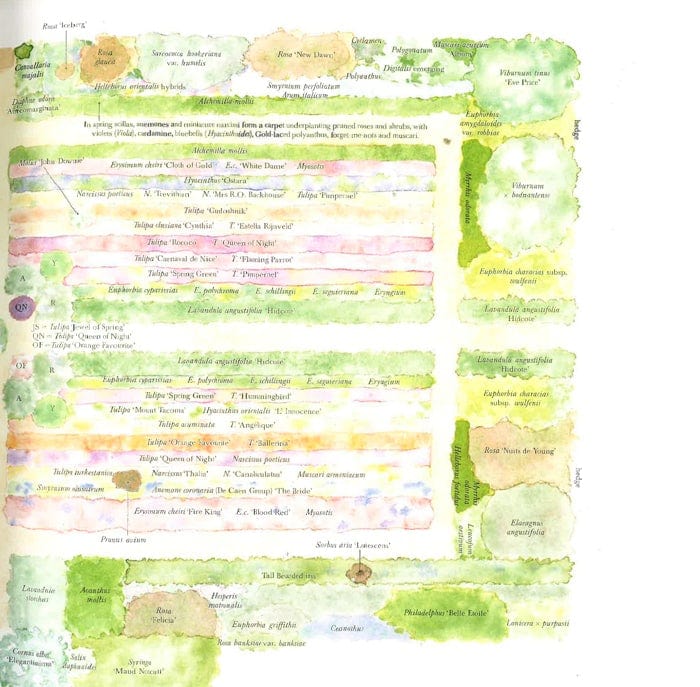 Rosa 'Iceberg'
Convallaria
majalis
Rosa
glauca
Sarcococca hookeriana
var. humilis
Rosa 'New Dawn'
Cyclamen
Polygonatum
Muscari azureum
'Album'
Digitalis emerging
Polyanthus
Viburnum tinus
'Eve Price'
Helleborus orientalis hybrids
Smyrnium perfoliatum
Arum italicum
Daphne odora
'Aureomarginata'
Alchemilla mollis
Euphorbia
amygdaloides
var. robbiae
hedge
In spring scillas, anemones and miniature narcissi form a carpet underplanting pruned roses and shrubs, with
violets (Viola), cardamine, bluebells (Hyacinthoides), Gold-laced polyanthus, forget-me-nots and muscari.
Alchemilla mollis
Malus 'John Downie'
Erysimum cheiri 'Cloth of Gold' E.c. 'White Dame' Myosotis
Hyacinthus 'Ostara'
Narcissus poeticus N. 'Trevithian' N. 'Mrs R.O. Backhouse' Tulipa 'Pimpernel'
Tulipa 'Gudoshnik'
Tulipa clusiana 'Cynthia' T. 'Estella Rijnveld'
Tulipa 'Rococo' T. 'Queen of Night'
Tulipa 'Carnaval de Nice' T. 'Flaming Parrot'
Tulipa 'Spring Green' T. 'Pimpernel'
Euphorbia cyparissias E. polychroma E. schillingii E. seguieriana Eryngium
Lavandula angustifolia 'Hidcote'
Myrrhis odorata
Viburnum
× bodnantense
Euphorbia characias subsp.
wulfenii
Lavandula angustifolia
'Hidcote'
Y
A
R
QN
JS = Tulipa 'Jewel of Spring'
QN = Tulipa 'Queen of Night'
OF = Tulipa 'Orange Favourite'
OF
R
A
Y
Lavandula angustifolia 'Hidcote'
Euphorbia cyparissias E. polychroma E. schillingii E. seguieriana Eryngium
Tulipa 'Spring Green' T. 'Hummingbird'
Tulipa 'Mount Tacoma' Hyacinthus orientalis 'L'Innocence'
Tulipa acuminata T. 'Angélique'
Tulipa 'Orange Favourite' T. 'Ballerina'
Tulipa 'Queen of Night' Narcissus poeticus
Tulipa turkestanica Narcissus 'Thalia' N. 'Canaliculatus' Muscari armeniacum
Smyrnium olusatrum Anemone coronaria (De Caen Group) 'The Bride'
Erysimum cheiri 'Fire King' E.c. 'Blood Red' Myosotis
Lavandula angustifolia
'Hidcote'
Euphorbia characias
subsp. wulfenii
Rosa 'Nuits de Young'
Helleborus foetidus
Myrrhis
odorata
hedge
Elaeagnus
angustifolia
Leucojum
aestivum
Prunus avium
Sorbus aria 'Lutescens'
Tall Bearded iris
Lavandula
stoechas
Acanthus
mollis
Rosa
'Felicia'
Hesperis
matronalis
Euphorbia griffithii
Ceanothus
Philadelphus 'Belle Etoile'
Lonicera × purpusii
Rosa banksiae var. banksiae
Cornus alba
'Elegantissima'
Salix
daphnoides
Syringa
'Maud Notcutt'